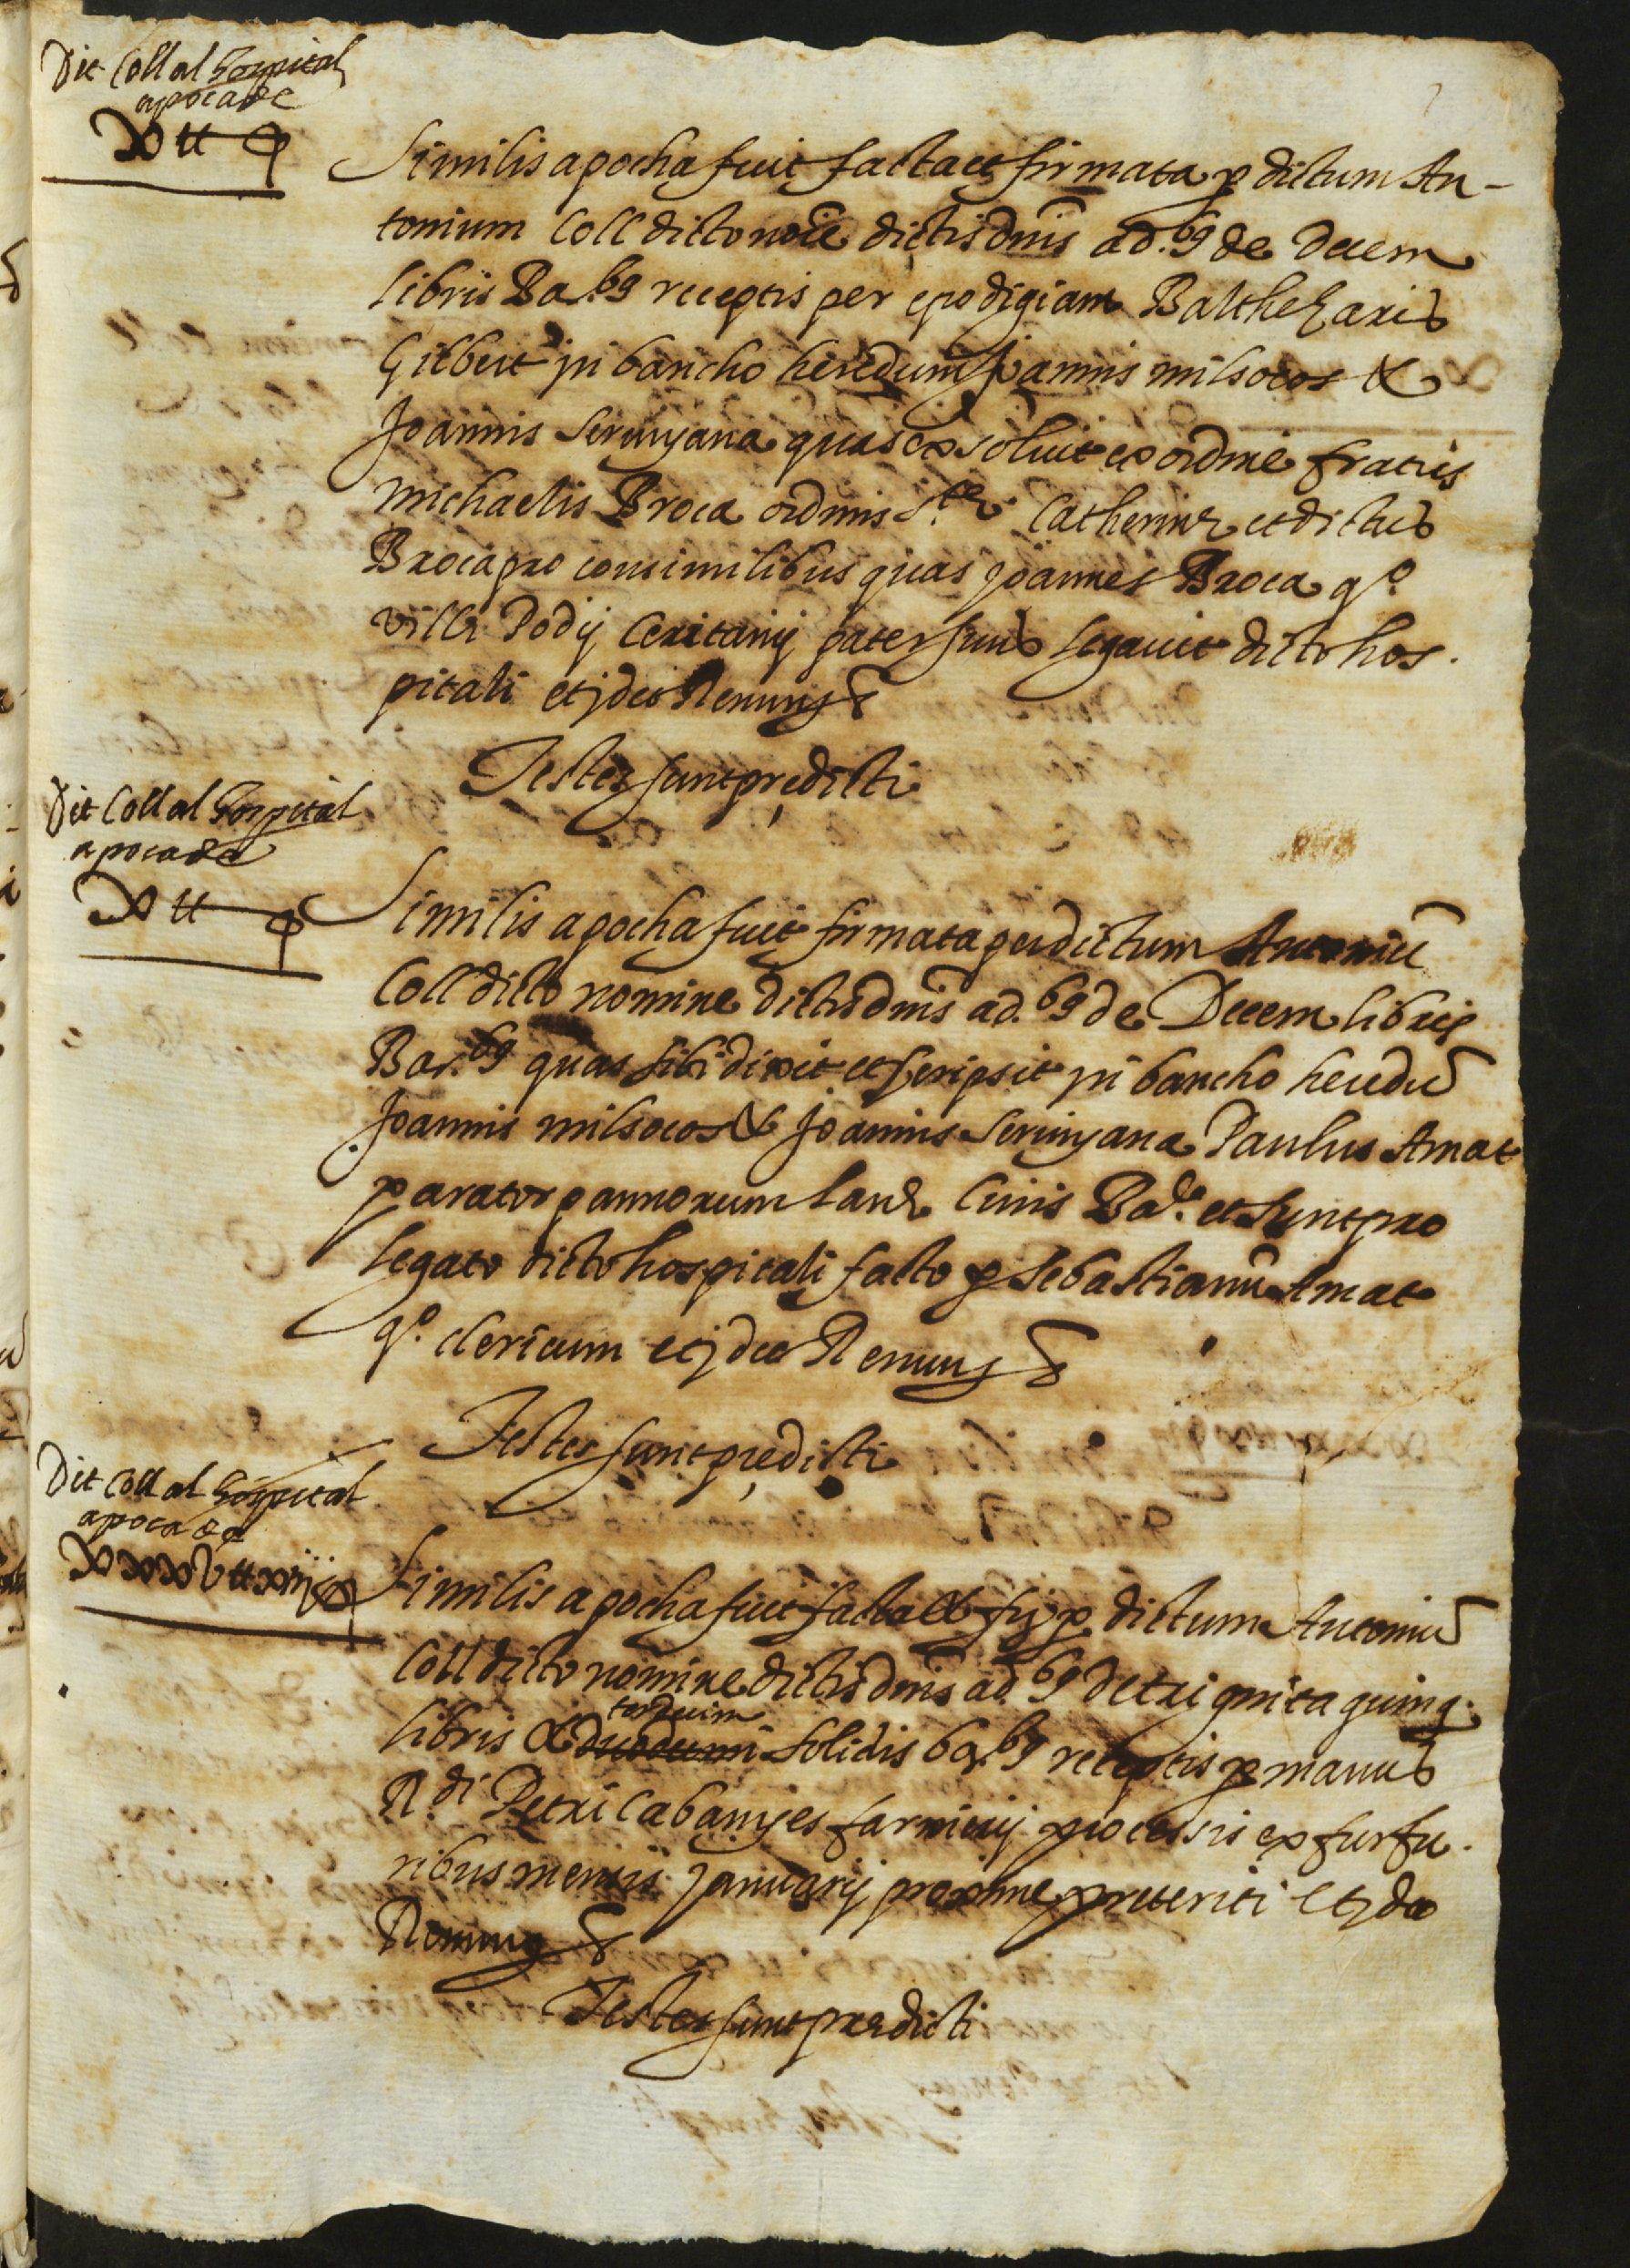 Dit Coll al Hospital
apoca de
X ll q
Similis apocha fuit facta et firmata p dictum An-
tonium Coll dicto noie dictis dnis ad.bs de decem
libris Ba.bs receptis per apodixiam Balthezaris
Gilbert in bancho heredum Joannis milsocos &
Joannis Serinyana quas exsoluit ex ordine fratris
michaelis Broca ordinis S.te Catherine et dictus
Broca pro consimilibus quas Joannes Broca q.o
ville Podij Ceritanij pater suus legauit dicto hos.
pitali et ideo Renun &
Testes sunt predicti
Dit Coll al Hospital
apoca de
X ll q
Similis apocha fuit firmata per dictum Antoniu
Coll dicto nomine dictis dnis ad.bs de Decem libris
Bar.bs quas sibi dixit et scripsit in bancho heredu
Joannis milsocos & Joannis Serinyana Paulus Amat
parator pannorum lane Ciuis Ba.e et sunt pro
legato dicto hospitali facto p Sebastianu Amat
q.o clericum et ideo Renun &
Testes sunt predicti
Dit Coll al Hospital
apoca de
XXXV ll
Similis apocha fuit facta & fir p dictum Antoniu
Coll dicto nomine dictis dnis ad.bs de triginta quinq.
libris & duodecim solidis ba.bs receptis p manus
R.di Petri Cabanyes processis ex furfu.
ribus mensis Januarij proxime preteriti et ideo
Renun &
Testes sunt predicti